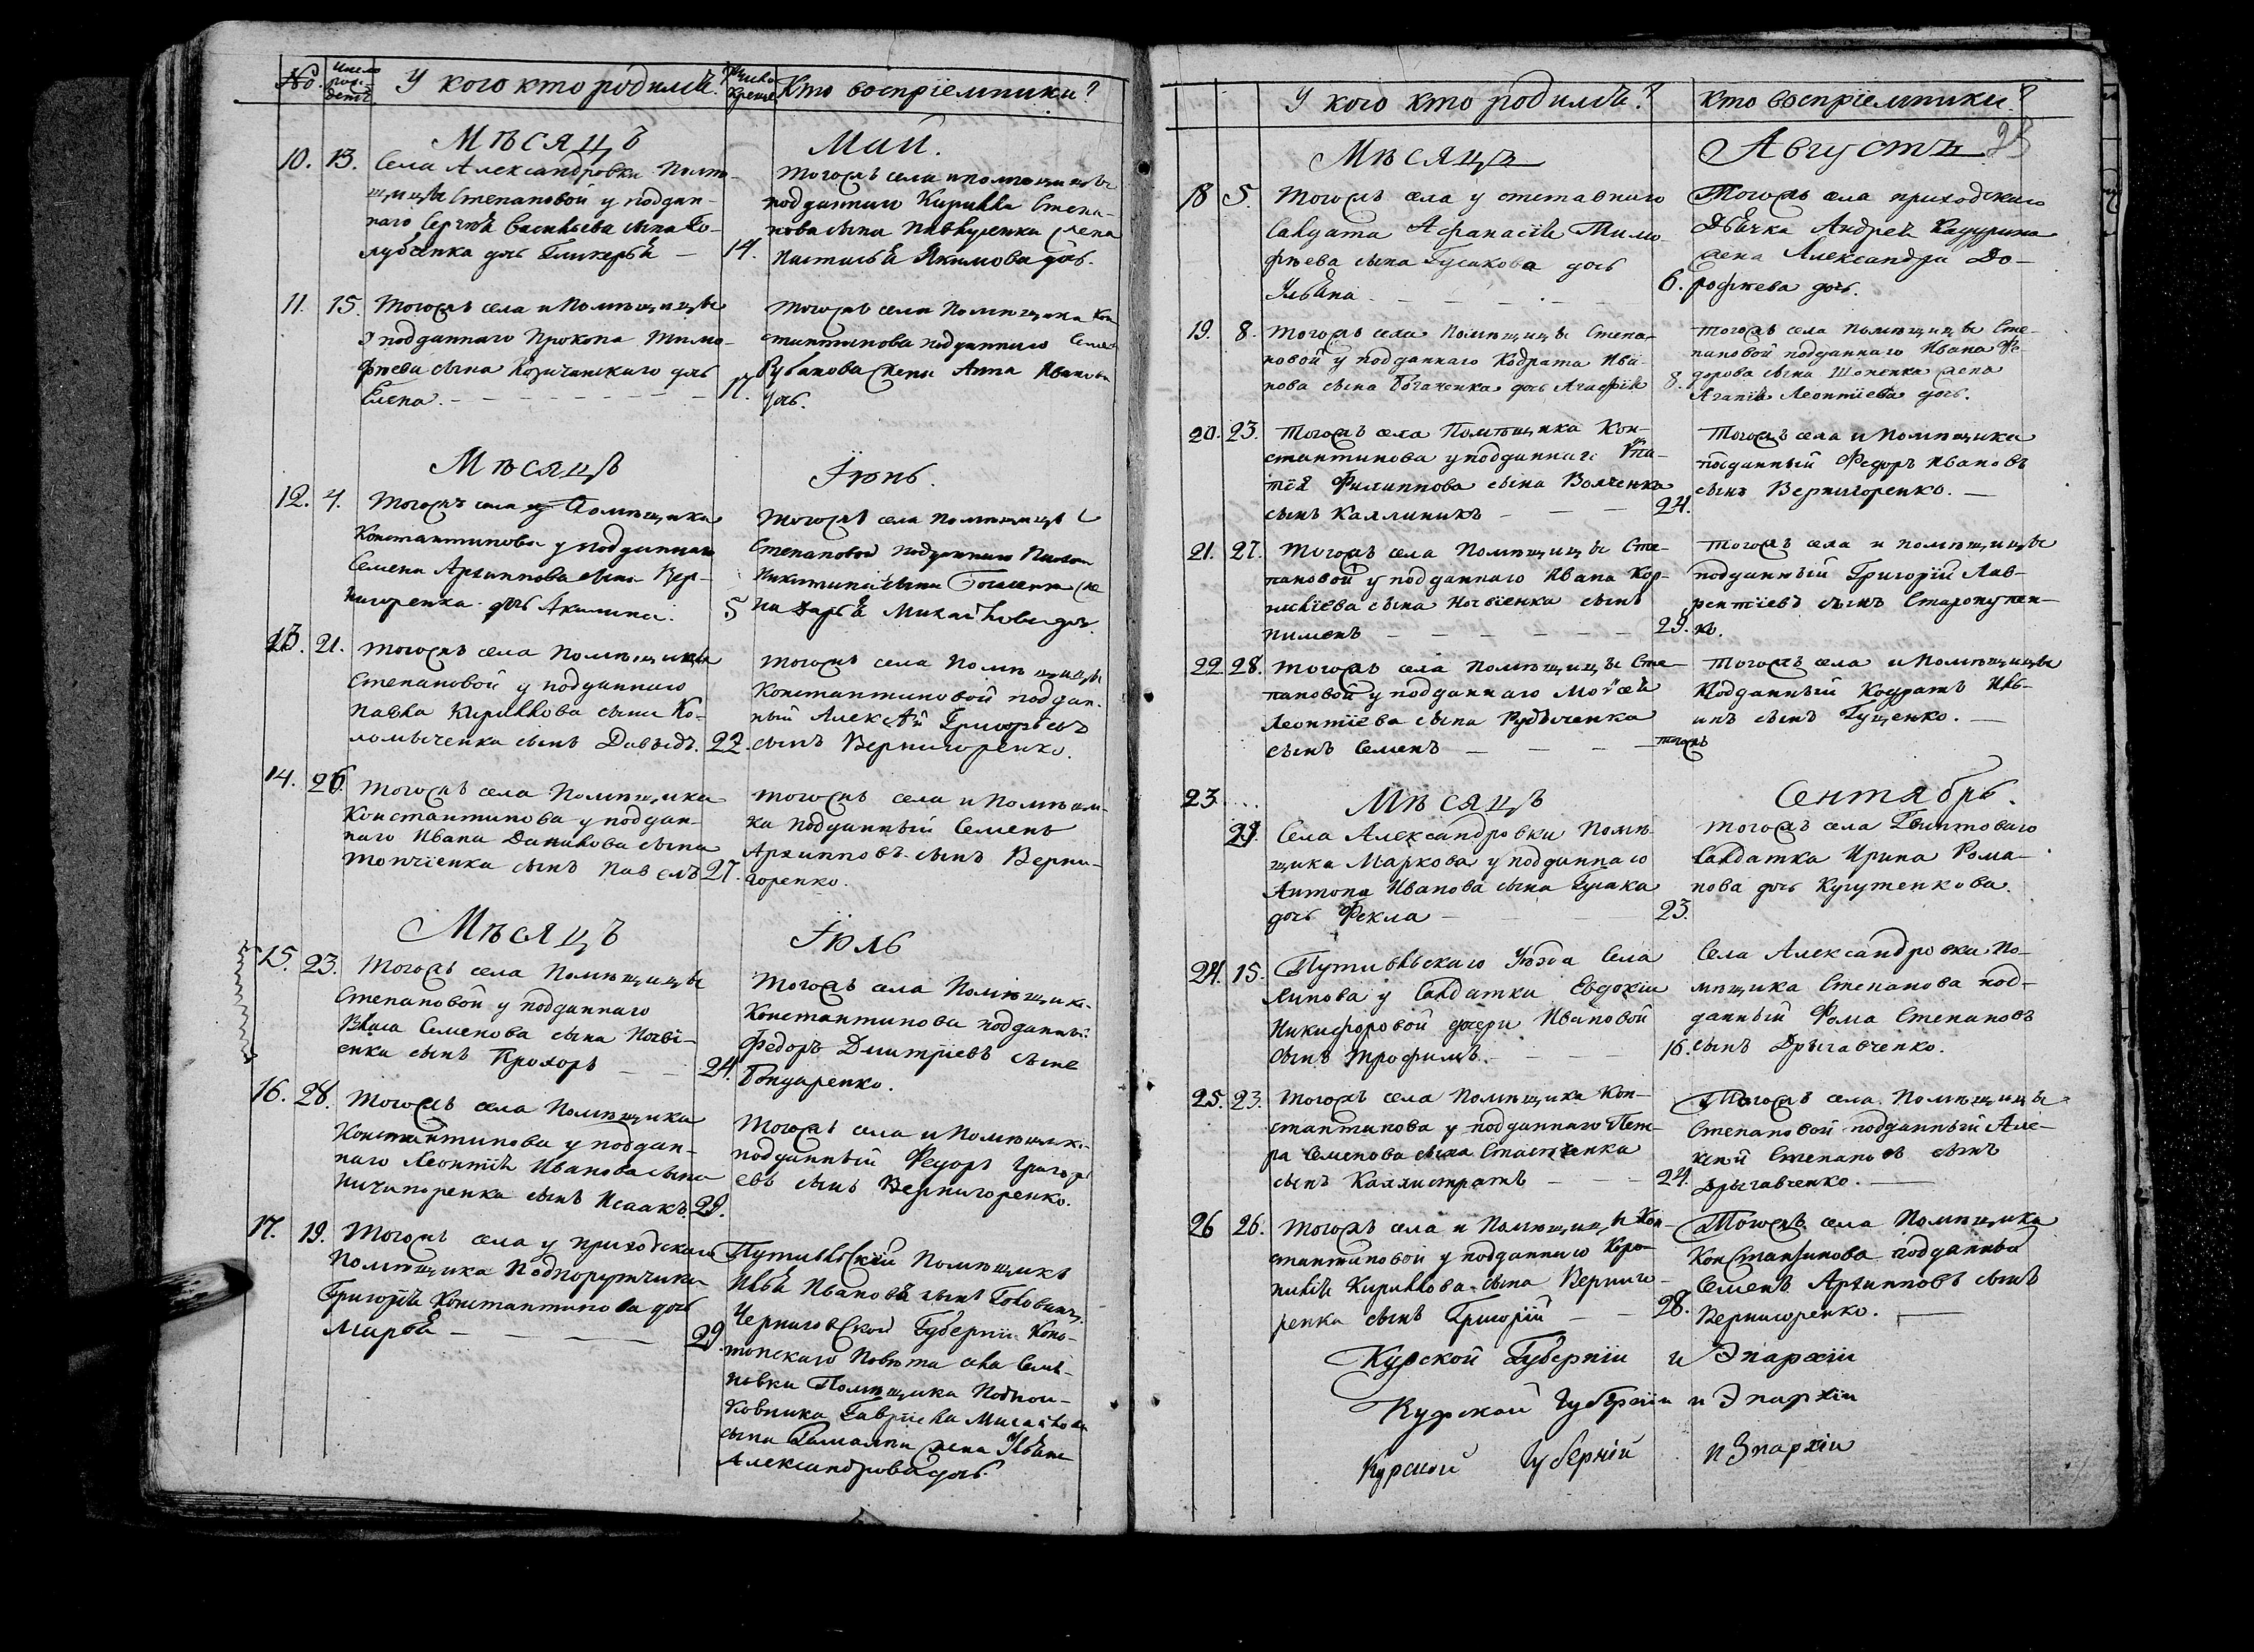 №. Число рождетъ У кого кто родился? Число крещен Кто воспріемники?
Мѣсяцъ Май.
10. 13. Села Александровки Помѣ-
щицы Степановой у поддан-
наго Сергѣя Васильева сына Го-
лубченка дочь Гликерья — 14.
Тогожъ села и помѣщицы
подданнаго Кирилла Степа-
нова сына Павкуленка жена
Настасья Якимова дочь.
11. 15. Тогожъ села и Помѣщицы
у подданнаго Прокопа Тимо-
фѣева сына Козичанскаго дочь
Елена. — 17.
Тогожъ села Помѣщика Кон
стантинова подданнаго
Рубанова жена Анна Иванова
дочь.
Мѣсяцъ Іюнь.
12. 4. Тогожъ села Помѣщика
Константинова у подданнаго
Семена Архиппова сына Вер-
нигоренка дочь Акилина. 5
Тогожъ села помѣщицы
Степановой подданнаго
Никитина сына Богаченка же
на Дарья Михайлова дочь.
13. 21. Тогожъ села Помѣщицы
Степановой у подданнаго
Павла Кириллова сына Ко-
ломыченка сынъ Давыдъ. 22.
Тогожъ села Помѣщицы
Константиновой поддан-
ный Алексѣй Григорьевъ
сынъ Вернигоренко.
14. 26. Тогожъ села Помѣщика
Константинова у поддан-
наго Ивана Данилова сына
Топчіенка сынъ Павелъ 27.
Тогожъ села и Помѣщи-
ка подданный Семенъ
Архипповъ сынъ Верни-
горенко.
Мѣсяцъ Іюль
15. 23. Тогожъ села Помѣщицы
Степановой у подданнаго
Власа Семенова сына Носві-
енка сынъ Прохоръ — 24.
Тогожъ села Помѣщика
Константинова подданный
Федоръ Дмитріевъ сынъ
Бондаренко.
16. 28. Тогожъ села Помѣщика
Константинова у поддан-
наго Леонтія Иванова сына
Ничипоренка сынъ Исаакъ. 29.
Тогожъ села и Помѣщика
подданный Федоръ Григорь
евъ сынъ Вернигоренко.
17. 19. Тогожъ села у приходскаго
Помѣщика Подпорутчика
Григорія Константинова дочь
Марья — 29.
Путивльскій Помѣщикъ
Илья Ивановъ сынъ Головинъ,
Черниговской Губерніи Коно-
топскаго Повѣта села Семя-
новки Помѣщика Подпол-
ковника Гавріила Михайлова
сына жена Ульяна
Александрова дочь.
У кого кто родился? Кто воспріемники?
Мѣсяцъ Августъ 23
18 5. Тогожъ села у отставнаго
Салдата Афанасія Тимо-
фѣева сына Гусакова дочь
Ульяна — 6.
Тогожъ села приходскаго
Дьячка Андрея Кадурина
жена Александра До-
рофѣева дочь.
19. 8. Тогожъ села Помѣщицы Степа-
новой у подданнаго Кодрата Ива-
нова сына Богаченка дочь Агафія 8.
Тогожъ села Помѣщицы Сте-
пановой подданнаго Ивана Фе
дорова сына Шопенка жена
Агапія Леонтіева дочь.
20. 23. Тогожъ села Помѣщика Кон-
стантинова у подданнаго Ипа-
тія Филиппова сына Волченка
сынъ Каллиникъ — 24.
Тогожъ села и Помѣщика
подданный Федоръ Ивановъ
сынъ Вернигоренко. —
21. 27. Тогожъ села Помѣщицы Сте-
пановой у подданнаго Ивана Кор-
нилiева сына Носвіенка сынъ
Пименъ — 29.
Тогожъ села и помѣщицы
подданный Григорій Лав-
рентіевъ сынъ Старопутен-
ко.
22. 28. Тогожъ села Помѣщицы Сте-
пановой у подданнаго Мойсея
Леонтіева сына Рудыченка
сынъ Семенъ — тогожъ
Тогожъ села и Помѣщицы
Подданный Кодратъ Иль-
инъ сынъ Гущенко. —
23. Мѣсяцъ Сентябрь.
21. Села Александровки Помѣ-
щика Маркова у подданнаго
Антона Иванова сына Гусака
дочь Фекла — 23.
Тогожъ села
Салдатка Ирина Рома-
нова дочь Кугутенкова.
24. 15. Путивльскаго Уѣзда Села
Линова у Салдатки Евдокіи
Никифоровой дочери Ивановой
сынъ Трофимъ. — 16.
Села Александровки По-
мѣщика Степанова под-
данный Фома Степановъ
сынъ Дрыгавченко.
25. 23. Тогожъ села Помѣщика Кон-
стантинова у подданнаго Пет-
ра Семенова сына
сынъ Каллистратъ — 24.
Тогожъ села Помѣщицы
Степановой подданный Але-
ксѣй Степановъ сынъ
Дрыгавченко. —
26 26. Тогожъ села и Помѣщицы Кон-
стантиновой у подданнаго Кор-
нилія Кириллова сына Верниго-
ренка сынъ Григорій — 28.
Тогожъ села Помѣщика
Константинова подданный
Семенъ Архипповъ сынъ
Вернигоренко. —
Курской Губерніи и Эпархіи
Курской Губерніи и Эпархіи
Курской Губерній и Эпархіи